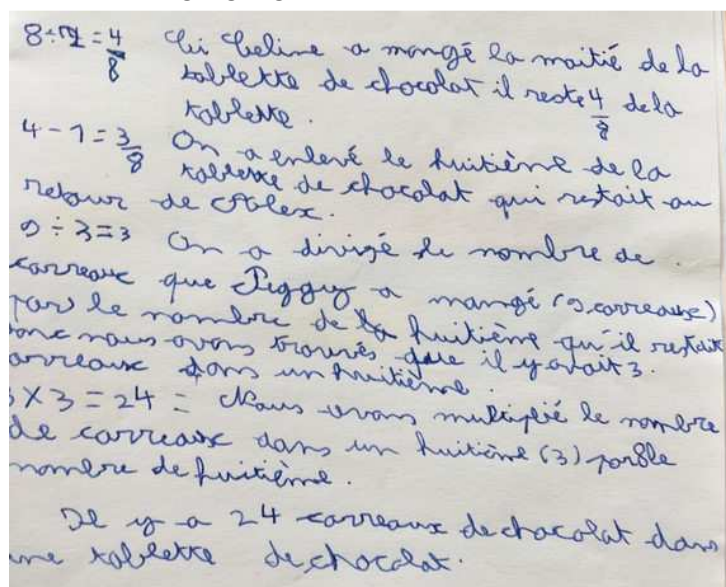 8÷2=4/8 Si Celine a mangé la moitié de la
tablette de chocolat il reste 4/8 de la
tablette.
4-1=3/8 On a enlevé le huitième de la
tablette de chocolat qui restait au
retour de d'Alex.
9÷3=3 On a divisé le nombre de
carreaux que Peggy a mangé (9 carreaux)
par le nombre de huitième qu'il restait
donc nous avons trouvés que il y avait 3.
carreaux dans un huitième.
8×3=24= Nous avons multiplié le nombre
de carreaux dans un huitième (3) par 8 le
nombre de huitième.
Il y a 24 carreaux de chocolat dans
une tablette de chocolat.